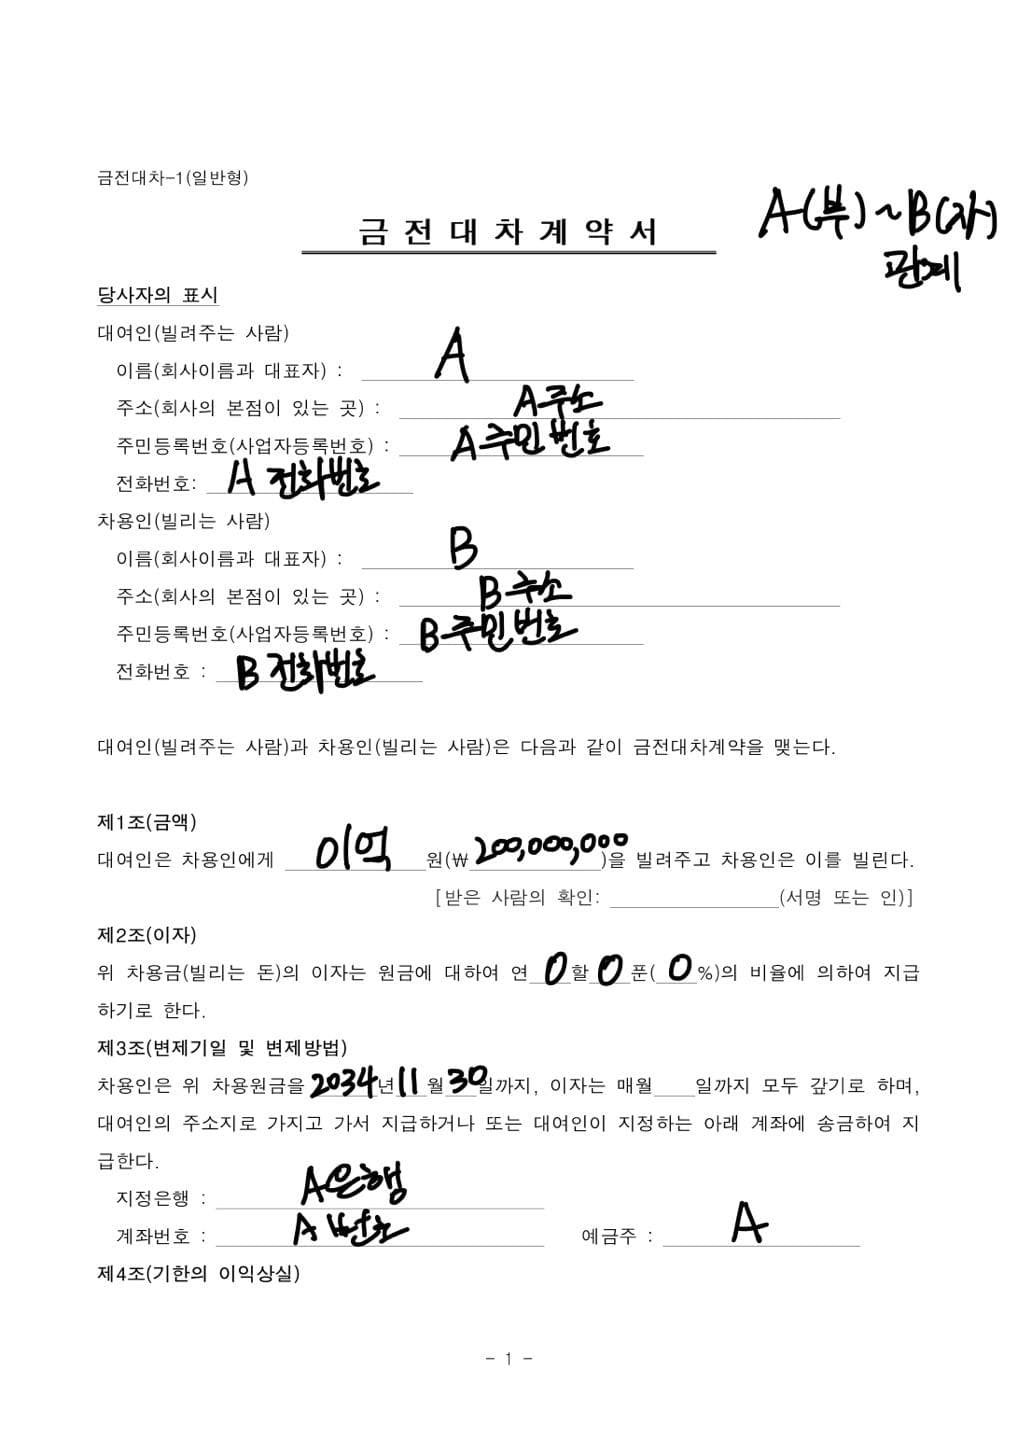 금전대차-1(일반형)
A(부)~B(자)
관계
금 전 대 차 계 약 서
당사자의 표시
대여인(빌려주는 사람)
이름(회사이름과 대표자) : A
주소(회사의 본점이 있는 곳) : A 주소
주민등록번호(사업자등록번호) : A 주민번호
전화번호: A 전화번호
차용인(빌리는 사람)
이름(회사이름과 대표자) : B
주소(회사의 본점이 있는 곳) : B 주소
주민등록번호(사업자등록번호) : B 주민번호
전화번호 : B 전화번호
대여인(빌려주는 사람)과 차용인(빌리는 사람)은 다음과 같이 금전대차계약을 맺는다.
제1조(금액)
대여인은 차용인에게 이억 원(₩ 200,000,000 )을 빌려주고 차용인은 이를 빌린다.
[받은 사람의 확인: (서명 또는 인)]
제2조(이자)
위 차용금(빌리는 돈)의 이자는 원금에 대하여 연 0 할 0 푼( 0 %)의 비율에 의하여 지급
하기로 한다.
제3조(변제기일 및 변제방법)
차용인은 위 차용원금을 2034 년 11 월 30 일까지, 이자는 매월 일까지 모두 갚기로 하며,
대여인의 주소지로 가지고 가서 지급하거나 또는 대여인이 지정하는 아래 계좌에 송금하여 지
급한다.
지정은행 : A은행
계좌번호 : A 번호 예금주 : A
제4조(기한의 이익상실)
- 1 -